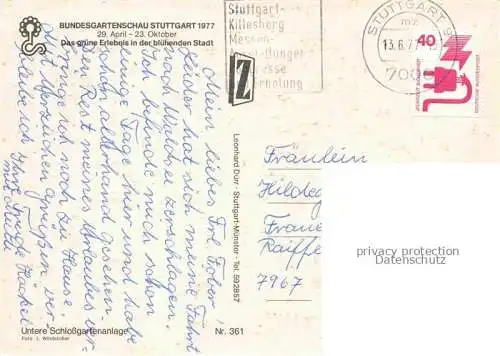 BUNDESGARTENSCHAU STUTTGART 1977
29. April - 23. Oktober
Das grüne Erlebnis in der blühenden Stadt
Mein liebes Frl. Tober!
Leider hat sich meine Fahrt
nach Waldsee zerschlagen.
Ich befinde mich schon
einige Tage hier und habe
schon allerhand gesehen.
Den Rest meines Urlaubes ver-
bringe ich noch zu Hause.
Mit herzlichen Grüßen ver-
bleibe ich Ihre
mit Mutti
Untere Schloßgartenanlage
Foto: L. Windstoßer
Nr. 361
Leonhard Durr - Stuttgart-Münster - Tel. 592857
Stuttgart-
Killesberg
Messen
Kongresse
Erholung
Z
STUTTGART 9
mz
13.6.77
7000
40
DEUTSCHE BUNDESPOST
Fräulein
Hildeg
Raiffe
7967
privacy protection
Datenschutz